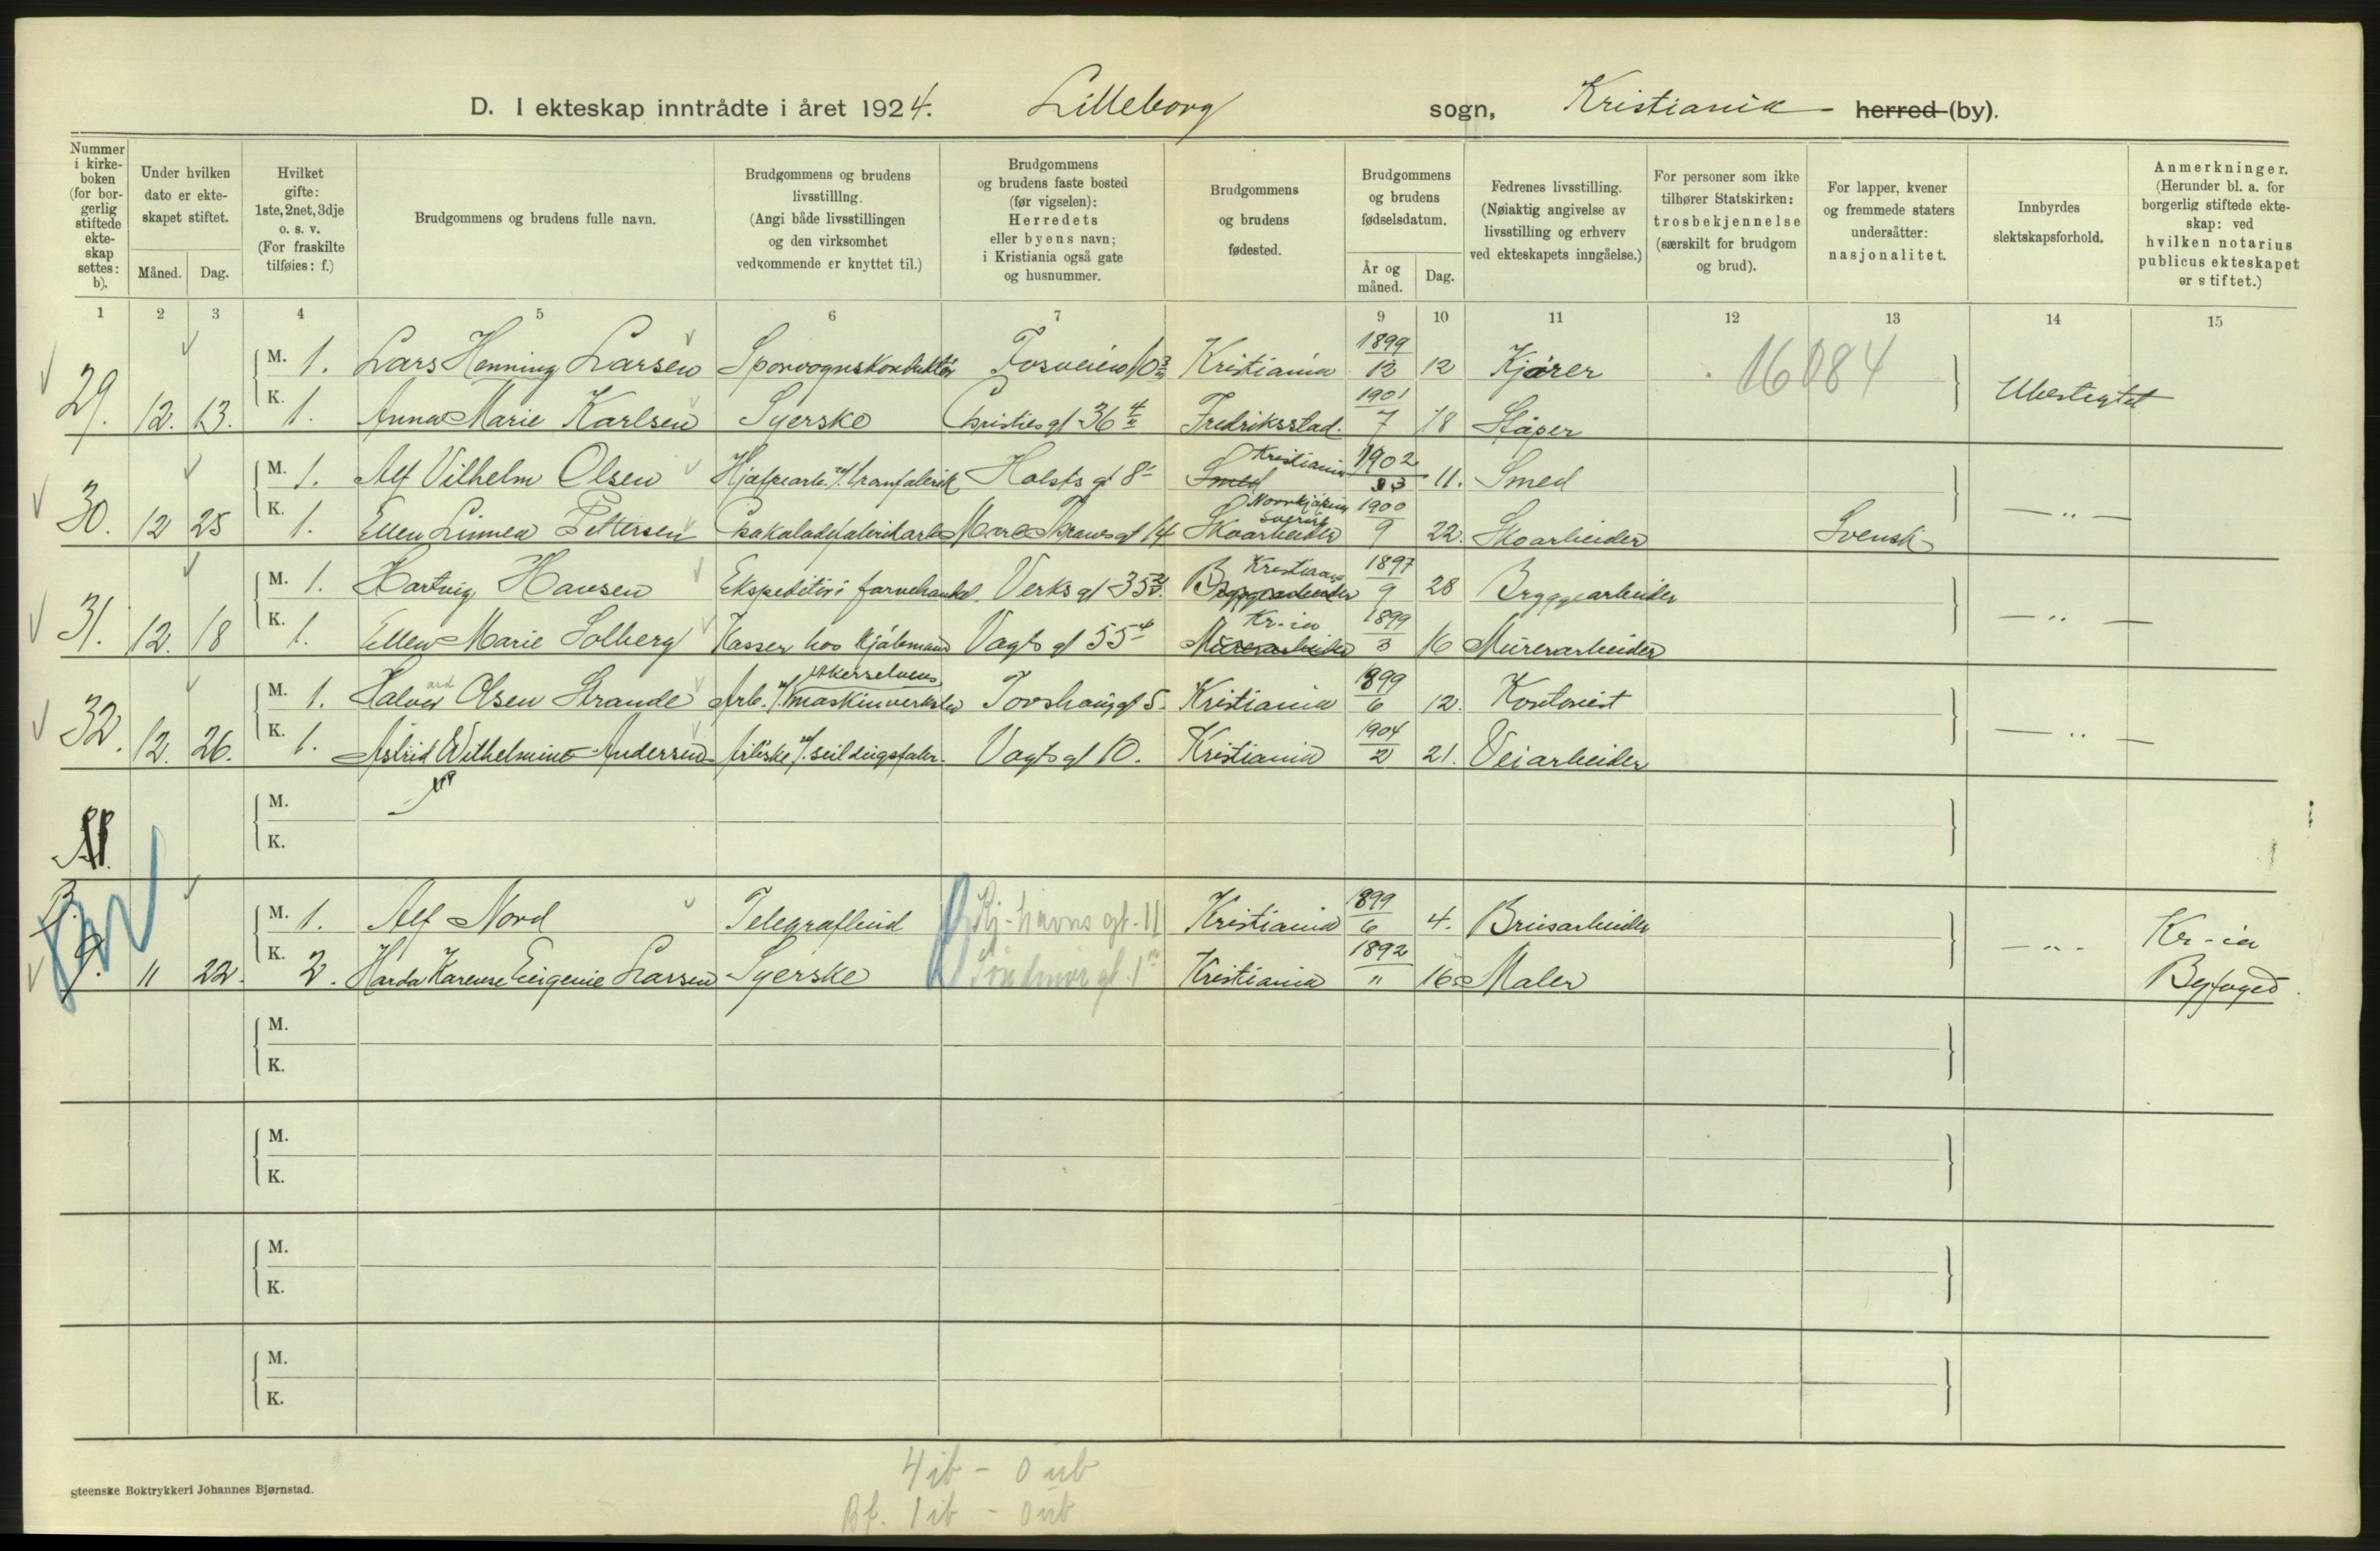 D. I ekteskap inntrådte i året 1924. Lilleborg sogn, Kristiania herred (by).
Nummer i kirkeboken (for borgerlig stiftede ekteskap settes: b).
Under hvilken dato er ekteskapet stiftet.
Måned. Dag.
Hvilket gifte: 1ste, 2net, 3dje o. s. v. (For fraskilte tilføies: f.)
Brudgommens og brudens fulle navn.
Brudgommens og brudens livsstilllng. (Angi både livsstillingen og den virksomhet vedkommende er knyttet til.)
Brudgommens og brudens faste bosted (før vigselen): Herredets eller byens navn; i Kristiania også gate og husnummer.
Brudgommens og brudens fødested.
Brudgommens og brudens fødselsdatum.
År og måned. Dag.
Fedrenes livsstilling. (Nøiaktig angivelse av livsstilling og erhverv ved ekteskapets inngåelse.)
For personer som ikke tilhører Statskirken: trosbekjennelse (særskilt for brudgom og brud).
For lapper, kvener og fremmede staters undersåtter: nasjonalitet.
Innbyrdes slektskapsforhold.
Anmerkninger. (Herunder bl. a. for borgerlig stiftede ekteskap: ved hvilken notarius publicus ekteskapet er stiftet.)
1 2 3 4 5 6 7 8 9 10 11 12 13 14 15
M. 1. Lars Henning Larsen Sporvognskonduktör Fosveien 10 3 Kristiania 1899 12 12 Kjörer 16084
29. 12. 13. K. 1. Anna Marie Karlsen Syerske Christies gt 36 4 Fredriksstad. 1901 7 18 Släper Ubeslegtet
M. 1. Alf Vilhelm Olsen Hjælpearb. v/ tranfabrik Holsts gt 8 Smed Kristiania 1902 11. Smed
30. 12 25 K. 1. Ellen Linnea Pettersen Chokoladefabrikarb Marc Thranes gt 14 Skoarbeider Norrkjöping Sverige 1900 9 22. Skoarbeider Svensk — " —
M. 1. Hartvig Hansen Ekspeditör i farvehandel. Verks gt 35 2. Bryggearbeider Kristiania 1897 9 28 Bryggearbeider
31. 12. 18 K. 1. Ellen Marie Solberg Kasser hos kjöbmand Vogts gt 55 4 Murerarbeider Kr-ia 1899 3 16 Murerarbeider — " —
M. 1. Halvor Olsen Strande Arb. v/ Akerselvens maskinverksted Torshaug gt 5. Kristiania 1899 6 12. Kontorist
32. 12. 26. K. 1. Astrid Wilhelmine Andersen Arbiske v/ seildugsfabr. Vogts gt 10. Kristiania 1904 2 21. Veiarbeider — " —
M.
K.
B. M. 1. Alf Nord Telegrafbud Kj-havns gt. 11 Kristiania 1899 6 4. Brusarbeider Kr-ia
9. 11 22. K. 2. Harda Karense Eugenie Larsen Syerske Söndmör gt. 1 Kristiania 1892 11 16 Maler — " — Byfoged
M.
K.
M.
K.
M.
K.
M.
K.
4 ib - 0 ub
gteenske Boktrykkeri Johannes Bjørnstad.
Bf. 1 ib - 0 ub